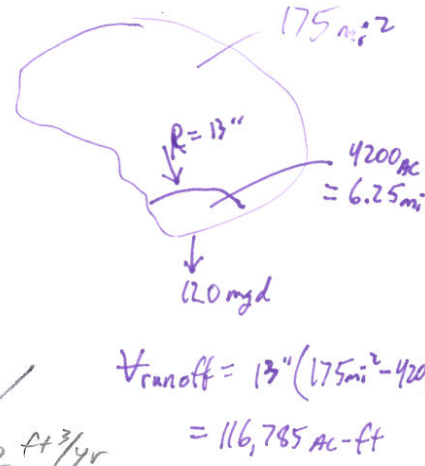 175 mi²
R = 13"
4200 AC
= 6.25 mi
120 mgd
V runoff = 13" (175 mi² - 420
= 116,785 AC-ft
ft³/yr